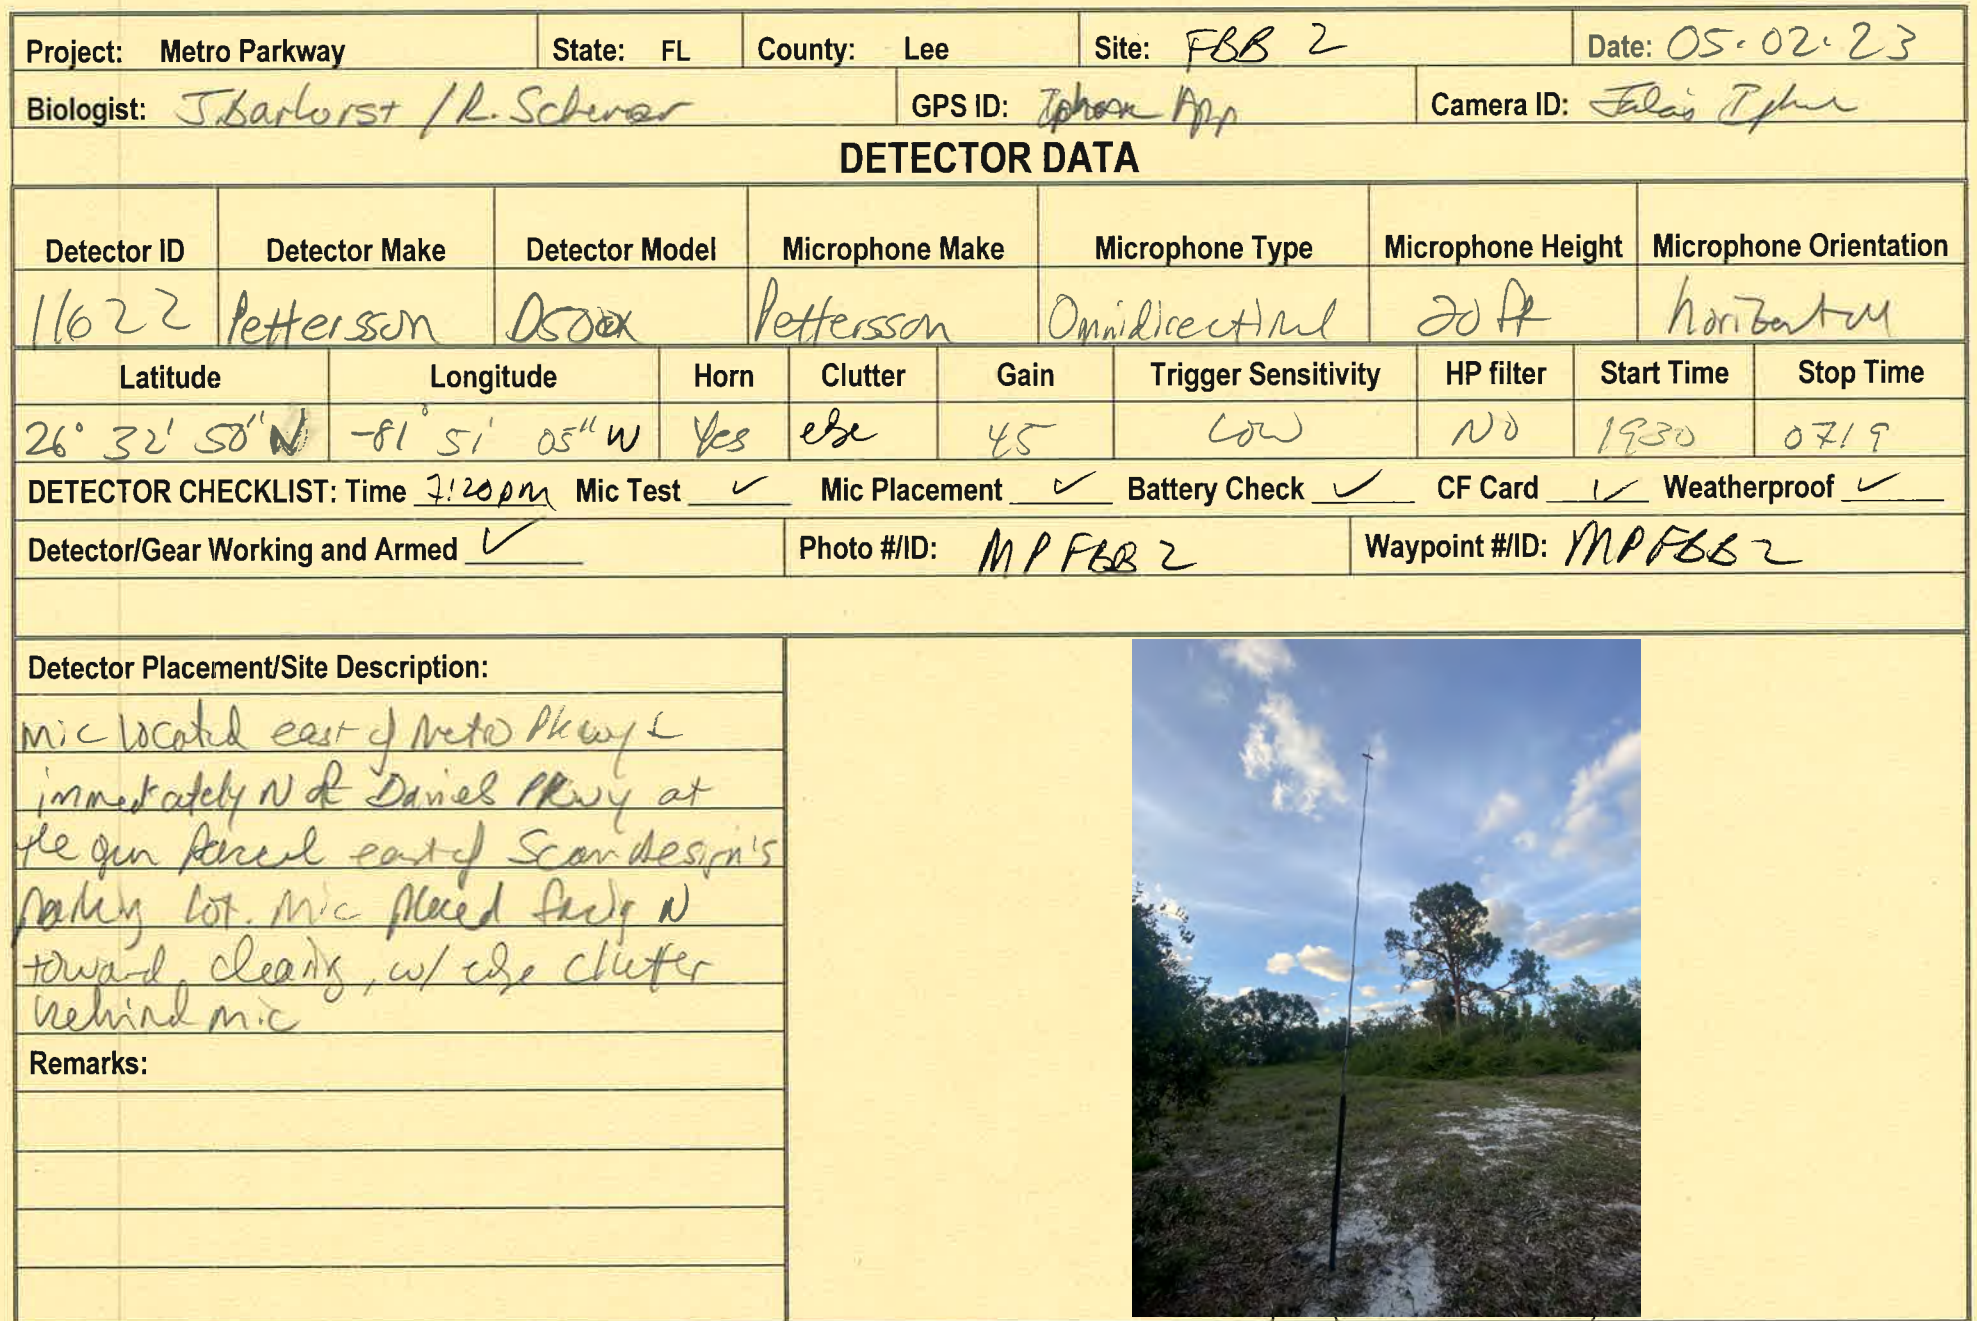 Project: Metro Parkway State: FL County: Lee Site: FBB 2 Date: 05.02.23
Biologist: J.Barhorst / R. Scherer GPS ID: Iphone App Camera ID: Iphone
DETECTOR DATA
Detector ID Detector Make Detector Model Microphone Make Microphone Type Microphone Height Microphone Orientation
11622 Pettersson D500x Pettersson Omnidirectional 20 ft horizontal
Latitude Longitude Horn Clutter Gain Trigger Sensitivity HP filter Start Time Stop Time
26° 32' 50" N -81° 51' 05" W Yes edge 45 Low NO 1930 0719
DETECTOR CHECKLIST: Time 7:20pm Mic Test ✓ Mic Placement ✓ Battery Check ✓ CF Card ✓ Weatherproof ✓
Detector/Gear Working and Armed ✓ Photo #/ID: MPFBB 2 Waypoint #/ID: MPFBB 2
Detector Placement/Site Description:
Mic located east of Metro Pkwy &
immediately N of Daniels Pkwy at
the open parcel east of Scandesign's
parking lot. Mic placed facing N
toward clearing, w/ edge clutter
behind mic
Remarks: